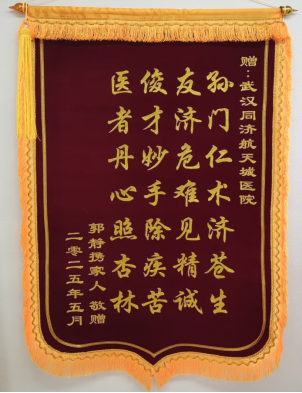 赠：武汉同济航天城医院
孙门仁术济苍生
友济危难见精诚
俊才妙手除疾苦
医者丹心照杏林
郭静携家人 敬赠
二零二五年五月